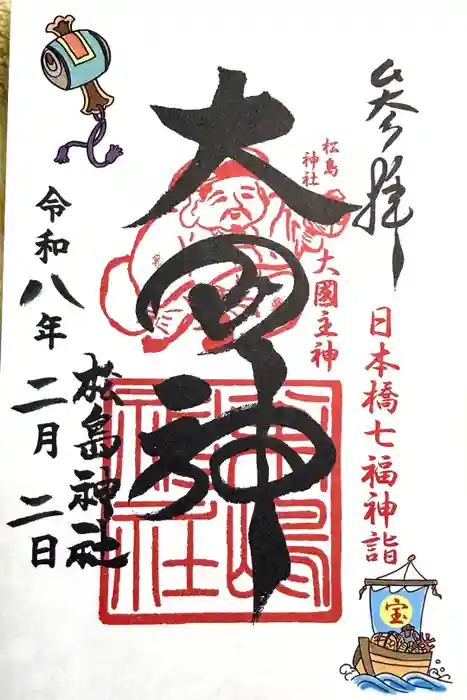 参拝
日本橋七福神詣
松島
神社
大國主神
大国神
松島神社
令和八年
二月二日
松嶋
神社
宝